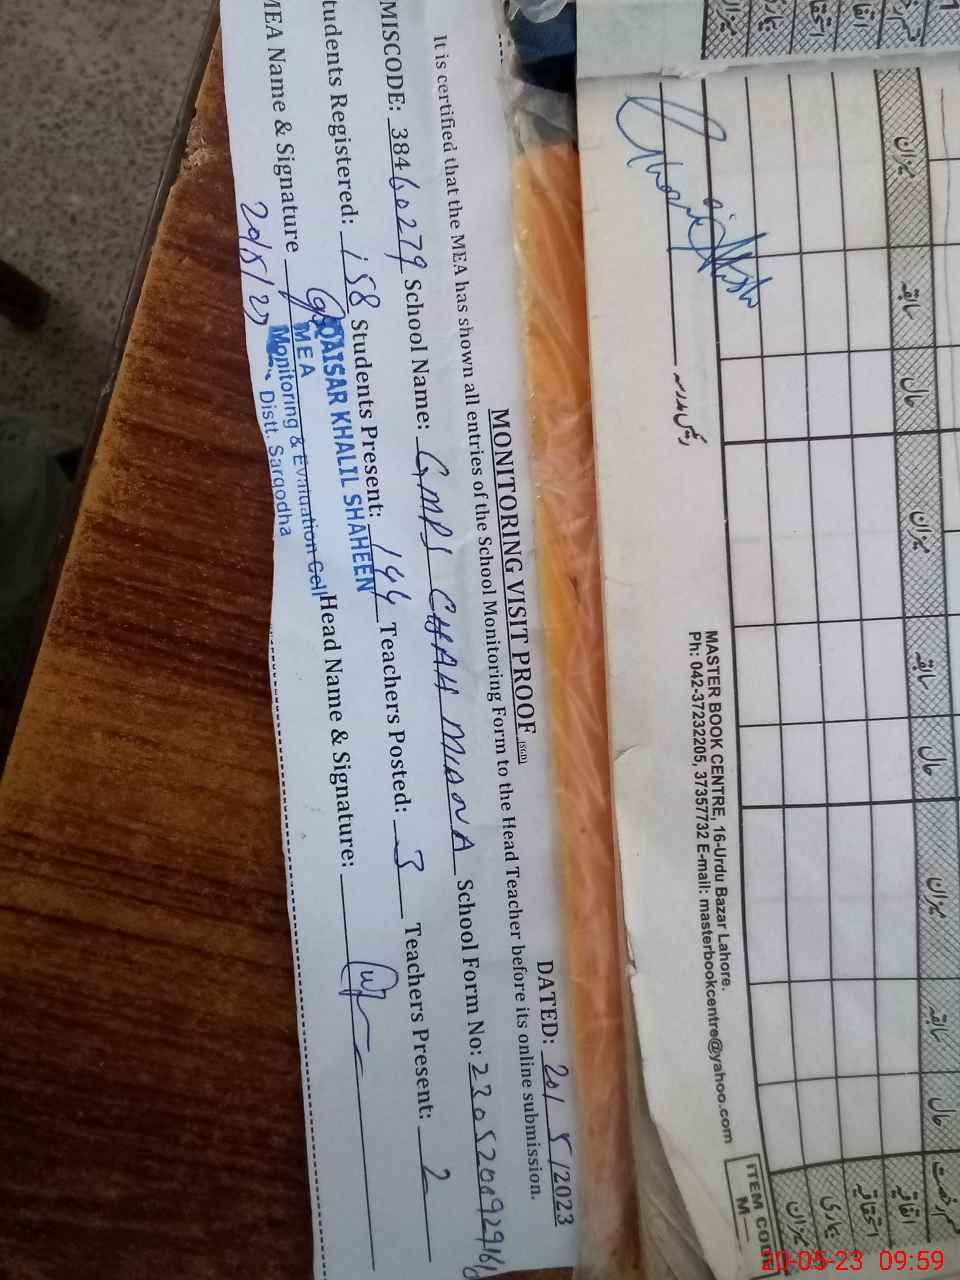 MONITORING VISIT PROOF (SGD)
DATED: 20/ 5 /2023
It is certified that the MEA has shown all entries of the School Monitoring Form to the Head Teacher before its online submission.
MISCODE: 38460279 School Name: GMPS CHAH MIANA School Form No:
tudents Registered: 158 Students Present: 144 Teachers Posted: 3 Teachers Present: 2
MEA Name & Signature Head Name & Signature:
QAISAR KHALIL SHAHEEN
MEA
Monitoring & Evaluation Cell
Distt. Sargodha
20/5/23
رئیس مدرسہ
MASTER BOOK CENTRE, 16-Urdu Bazar Lahore.
Ph: 042-37232205, 37357732 E-mail: masterbookcentre@yahoo.com
ITEM CODE
M—
میزان سابقہ حال میزان سابقہ حال میزان سابقہ حال
اتفاقیہ
استحقاقیہ
بیماری
میزان
20-05-23 09:59